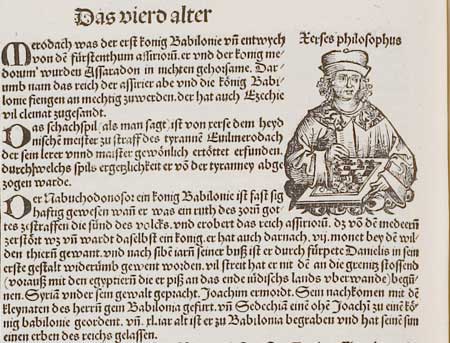 Das vierd alter
Xerses philosophus
Merodach was der erst konig Babilonie vñ entwych
von dẽ fürstenthum assirioruͫ. er vnd der konig me⸗
dorum wurden Assaradon in nichten gehorsame. Dar⸗
umb nam das reich der assirier abe vnd die kõnig Babi⸗
lonie fiengen an mechtig zuwerden. der hat auch Ezechie
vil cleinat zugesandt.
Das schachspil (als man sagt) ist von xerse dem heyd
nische meister zu straff des tyrannẽ Euilmerodach
der sein lerer vnnd maister gewonlich ertöttet erfunden.
durch welchs spils ergetzlichkeit er võ der tyranney abge
zogen warde.
Der Nabuchodonosor ein konig Babilonie ist fast sig
haftig gewesen wañ er was ein ruth des zorñ got
tes zestraffen die sünd des volcks. vnd erobert das reich assirioruͫ. dz võ dẽ medeern
zerstört wz vñ wardt daselbst ein konig. er hat auch darnach .vij. monet bey dẽ wil
den thiern gewant. vnd nach sibẽ iarñ seiner buß ist er durch fürpete Danielis in sein
erste gestalt widerumb gewent worden. vil streit hat er mit dẽ an die grenitz stossend
(vorauß mit den egyptiern die er piß an das ende iüdischs lands vberwande) begũ⸗
nen. Syriã vnder sein gewalt gepracht. Joachim ermordt. Sein nachkomen mit dẽ
kleynaten des herrñ gein Babilonia gefürt. vñ Sedechiã eins ohẽ Joachi zu einẽ kö⸗
nig babilonie geordent. vñ .xliar alt ist er zu Babilonia begraben vnd hat seinẽ sun
einen erben des reichs gelassen.